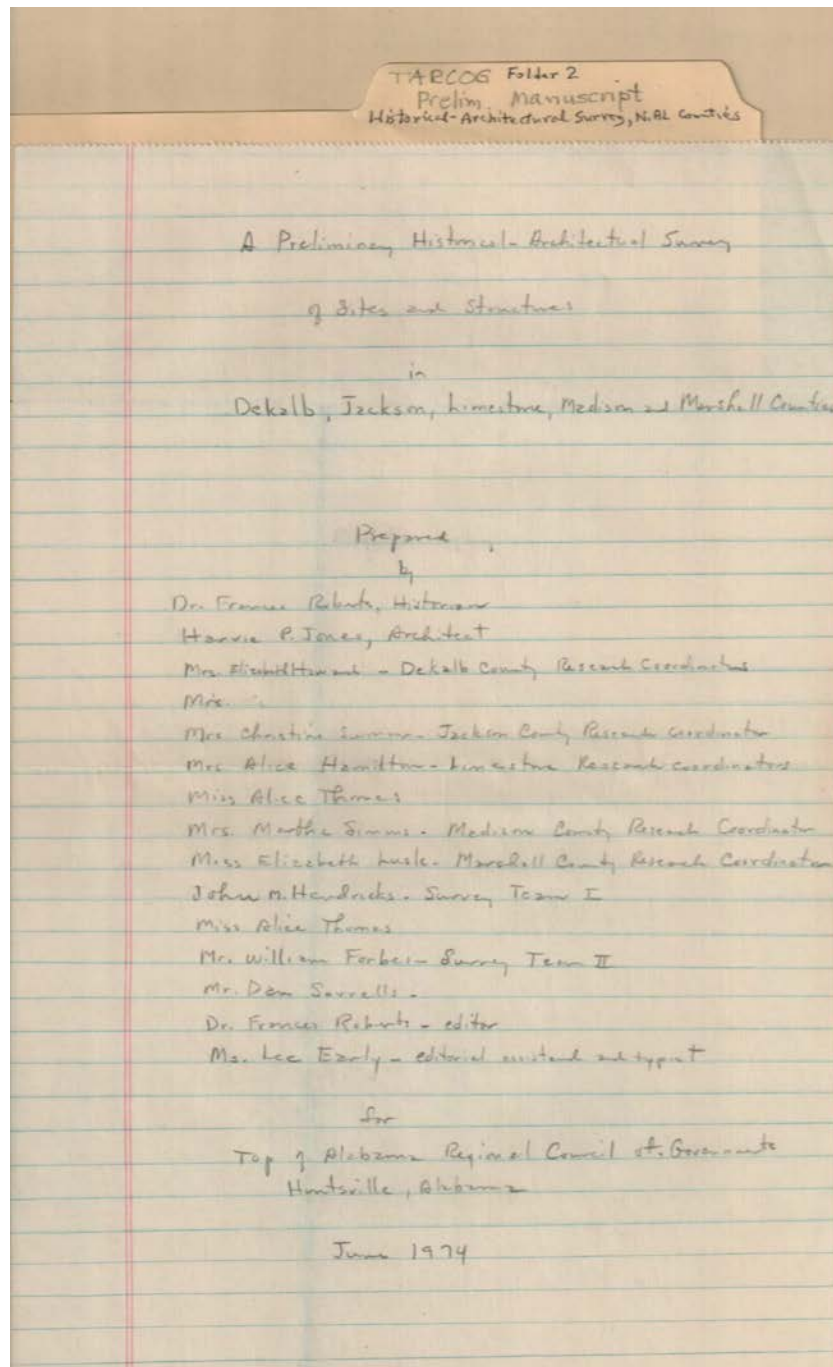 TARCOG Folder 2
Prelim. Manuscript
Historical-Architectural Survey, N. AL Counties
A Preliminary Historical-Architectural Survey
of Sites and Structures
in
Dekalb, Jackson, Limestone, Madison and Marshall Counties
Prepared
by
Dr. Frances Roberts, Historian
Harvie P. Jones, Architect
Mrs. Elizabeth - Dekalb County Research Coordinators
Mrs.
Mrs Christine - Jackson County Research Coordinator
Mrs Alice Hamilton - Limestone Research Coordinators
Miss Alice Thomas
Mrs. Martha Simms - Madison County Research Coordinator
Miss Elizabeth Lusk - Marshall County Research Coordinator
John M. Hendricks - Survey Team I
Miss Alice Thomas
Mr. William Forbes - Survey Team II
Mr. Dan Sorrells -
Dr. Frances Roberts - editor
Ms. Lee Early - editorial assistant and typist
for
Top of Alabama Regional Council of Governments
Huntsville, Alabama
June 1974